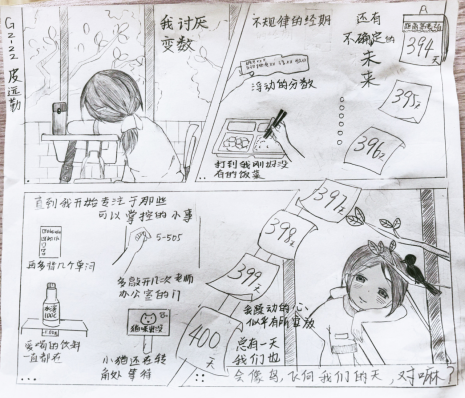 G2-22 皮远勤
我讨厌
变数
不规律的经期
浮动的分数
打到我刚好没
有的饭菜
还有
不确定的
未
来
394
天
395天
396天
397天
398天
399
天
400
天
直到我开始专注于那些
可以掌控的小事
再多背几个单词
5-505
多敲开几次老师
办公室的门
爱喝的饮料
一直都在
小猫还在转
角处等待
我跳动的心
似乎有所
总有一天
我们也
会像鸟,飞向我们的天,对嘛?